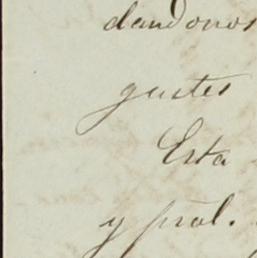 dandonos
gustes
Esta
y prâl.